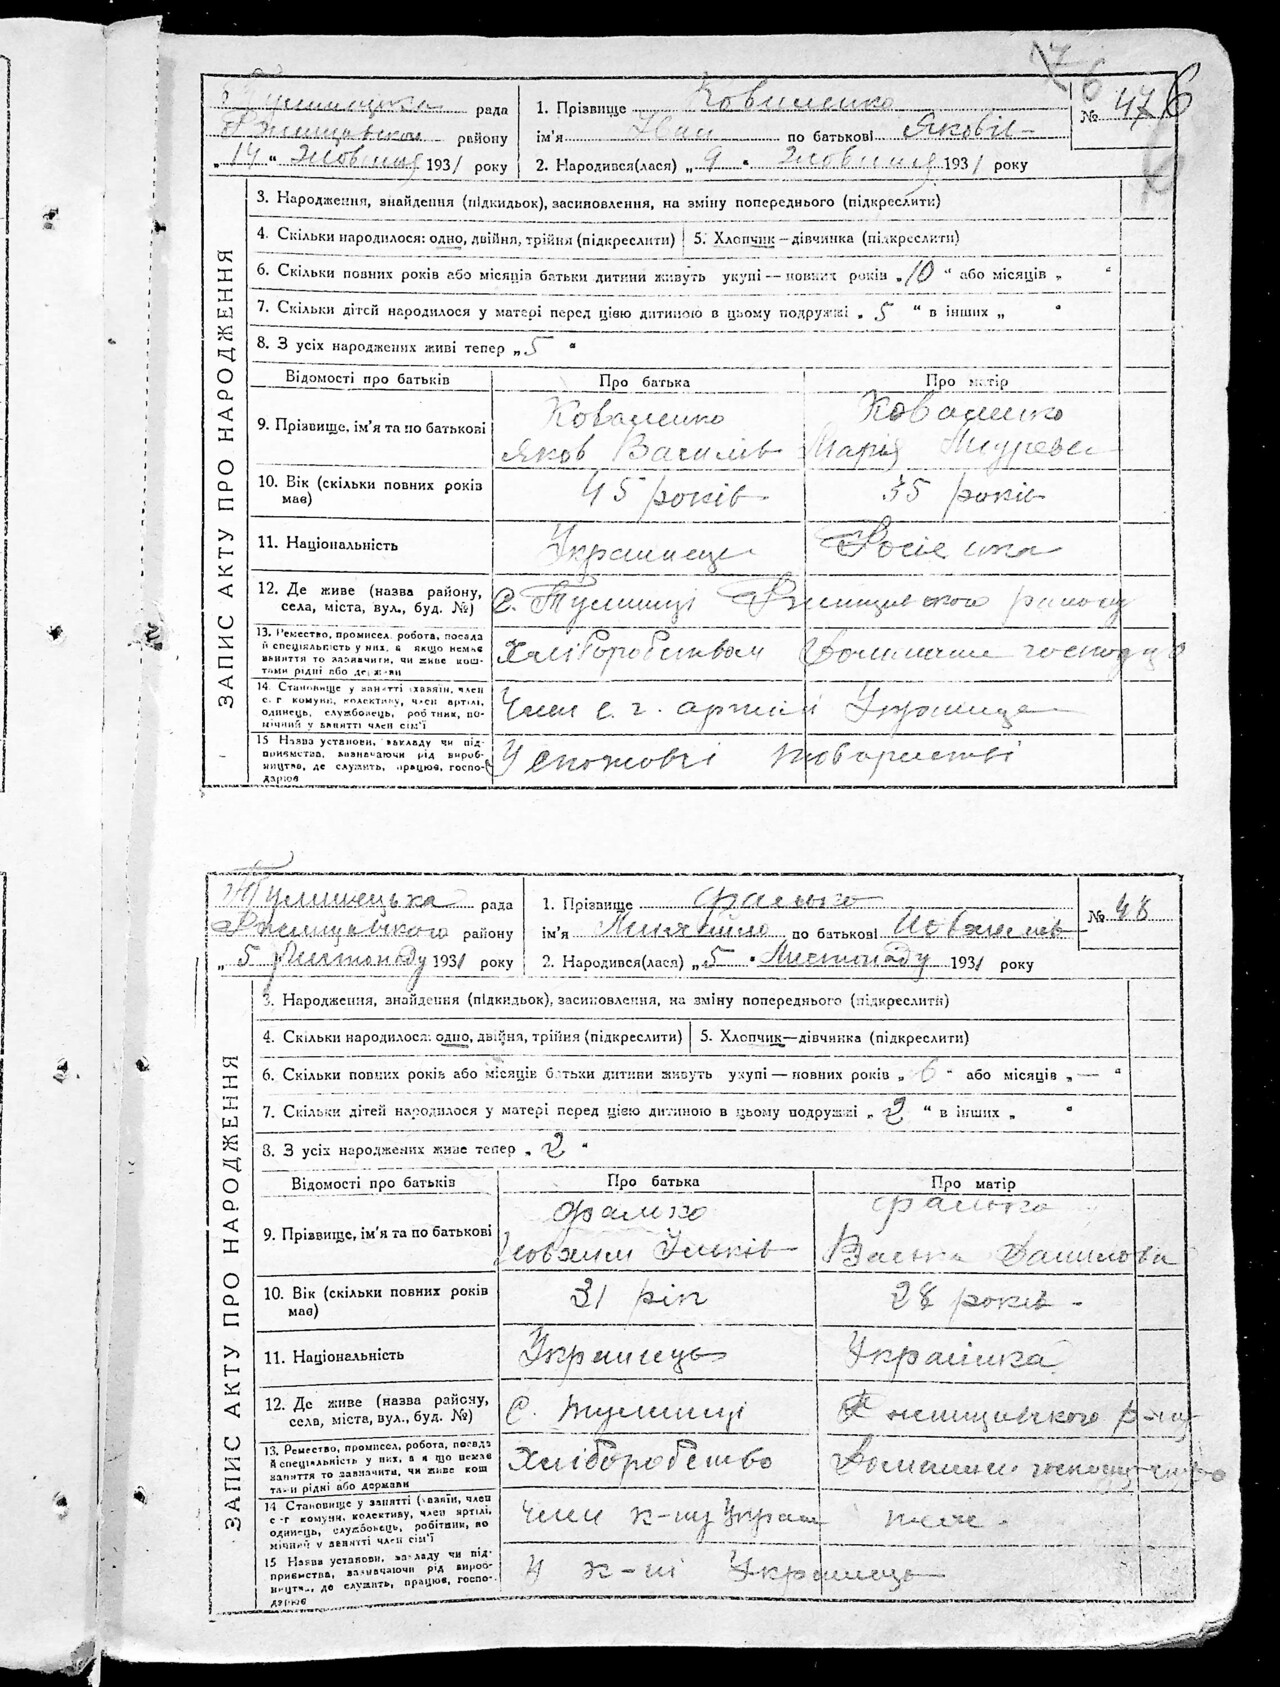 6
47
Тулинецька рада
Ржищівського району
„14“ Жовтня 1931 року
1. Прізвище Коваленко
ім'я Іван по батькові Яковів
2. Народився(лася) „9“ Жовтня 1931 року
№ 47
6
ЗАПИС АКТУ ПРО НАРОДЖЕННЯ
3. Народження, знайдення (підкидьок), засиновлення, на зміну попереднього (підкреслити)
4. Скільки народилося: одно, двійня, трійня (підкреслити) 5. Хлопчик – дівчинка (підкреслити)
6. Скільки повних років або місяців батьки дитини живуть укупі — повних років „10“ або місяців „ “
7. Скільки дітей народилося у матері перед цією дитиною в цьому подружжі „5“ в інших „ “
8. З усіх народжених живі тепер „5“
Відомості про батьків Про батька Про матір
9. Прізвище, ім'я та по батькові
Коваленко
Яков Василів
Коваленко
Марія
10. Вік (скільки повних років має)
45 років 35 років
11. Національність
Українець
12. Де живе (назва району,
села, міста, вул., буд. №)
с. Тулинці Ржищівського району
13. Ремество, промисел, робота, посада
й спеціяльність у них, а якщо немає
заняття то зазначити, чи живе кош-
тами рідні або держави
Хліборобством Домашнє господ
14. Становище у занятті (хазяїн, член
с.-г комуни, колективу, член артілі,
одинець, службовець, робітник, по-
мічний у занятті член сім'ї
Член с. г. артілі Українець
15 Назва установи, закладу чи під-
приємства, зазначаючи рід вироб-
ництва, де служить, працює, госпо-
дарює
товаристві
Тулинецька рада
Ржищівського району
„5“ Листопаду 1931 року
1. Прізвище Фалько
ім'я Михайло по батькові Йовхимів
2. Народився(лася) „5“ Листопаду 1931 року
№ 48
ЗАПИС АКТУ ПРО НАРОДЖЕННЯ
3. Народження, знайдення (підкидьок), засиновлення, на зміну попереднього (підкреслити)
4. Скільки народилося: одно, двійня, трійня (підкреслити) 5. Хлопчик—дівчинка (підкреслити)
6. Скільки повних років або місяців батьки дитини живуть укупі — повних років „6“ або місяців „—“
7. Скільки дітей народилося у матері перед цією дитиною в цьому подружжі „2“ в інших „ “
8. З усіх народжених живе тепер „2“
Відомості про батьків Про батька Про матір
9. Прізвище, ім'я та по батькові
Фалько
Йовхим Ільків
Фалько
Данилова
10. Вік (скільки повних років
має)
31 рік 28 років
11. Національність
Українець Українка
12. Де живе (назва району,
села, міста, вул., буд. №)
с. Тулинці Ржищівського р-ну
13. Ремество, промисел, робота, посада
й спеціяльність у них, а якщо немає
заняття то зазначити, чи живе кош
тами рідні або держави
Хліборобство Домашнє господарство
14 Становище у занятті (хазяїн, член
с-г комуни, колективу, член артілі,
одинець, службовець, робітник, по
мічний у занятті член сім'ї
Член к-пу теж
15 Назва установи, закладу чи під-
приємства, зазначаючи рід вироб-
ництва, де служить, працює, госпо-
дарює
Українець